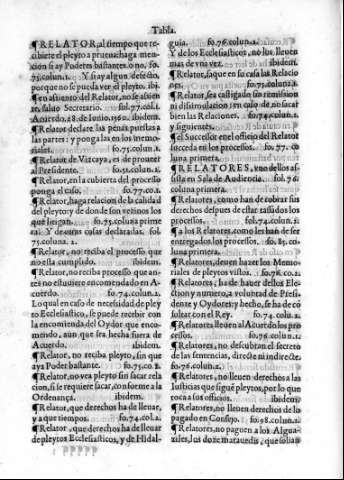 Tabla.
¶RELATOR, al tiempo que re-
cibiere el pleyto a prueua haga men-
cion si ay Poderes bastantes o no. fo.
75. colun.1. Y si ay algun defecto,
porque no se pueda ver el pleyto. ibi.
¶En ausencia del Relator, no se
saluo Secretario. fol.97. col.1.
Acuerdo, 28. de Iunio, 1560. ibidem.
¶Relator declare las penas puestas a
las partes: y ponga las en los
moriales. fo.75. colun.1.
¶Relator de Vizcaya, es de proueer
al Presidente. fo.51. colun.2.
¶Relator, en la cubierta del processo
ponga el caso. fo.77.co.2.
¶Relator, haga relacion de la calidad
del pleyto: y donde son vezinos los
que litigan. fo.75. coluna prime
ra. Y de otras cosas declaradas. fol.
75. coluna. 2.
¶Relator, no reciba el processo que
no esta cumplido. ibidem.
¶Relator, no reciba processo que an-
tes no estuuiere encomendado en A-
cuerdo. fo.74. colun.2.
Lo qual en caso de necessidad de pley
to Ecclesiastico, se puede recibir con
la encomienda del Oydor que enco-
miendo, aun que sea hecha fuera de
Acuerdo. ibidem.
¶Relator, no reciba pleyto, sin que
aya Poder bastante. fo.75.co.2.
¶Relator, no vea pleyto sin sacar rela
cion, si se requiere sacar, conforme a la
Ordenança. ibidem.
¶Relator, que derechos ha de lleuar,
y a que tiempos. fo.74. col.2.
¶Relator, que derechos ha de lleuar
de pleytos Ecclesiasticos, y de Hidal-
guia. fo.76. colun.1.
Y de los Ecclesiasticos, no los lleuen
mas de vna vez. ibidem.
¶Relator, saque en su casa las Relacio
nes. fo.75. colun.2.
¶Relator, sea castigado sin remission
ni disimulacion: en caso de no sacar
bien las Relaciones. fo.74. colun.2.
y siguientes.
¶el Successor en el officio del Relator
succeda en los processos. fo.77. co
luna primera.
¶RELATORES, vno dellos as
sista en Sala de Audiencia. fol.76.
coluna primera.
¶Relatores, como han de cobrar sus
derechos despues de estar tassados los
processos. fol.74. colun.2.
¶a los Relatores, como les han de ser
entregados los processos. fo.85. co-
luna primera.
¶Relatores, deuen hazer los Memo-
riales de pleytos vistos. fo.76. co.2.
¶Relatores, ha de hauer dellos Ele-
ction y numero, a voluntad de Presi-
dente y Oydores: y hecho, se ha de cō
sultar con el Rey. fo.74. colu.1.
¶Relatores lleuen al Acuerdo los pro
cessos. fo.76. colun.1.
¶Relatores, no descubran el secreto
de las sentencias, directe ni indirecte.
fo.76. colun.1.
¶Relatores, no lleuen derechos a las
Iusticias que siguē pleytos, por lo que
toca a sus officios. ibidem.
¶Relatores, no lleuen derechos de lo
pagado en Consejo. fo.98. colun.1.
¶Relatores, no paguen a los Algua-
ziles, los doze marauedis, que solian